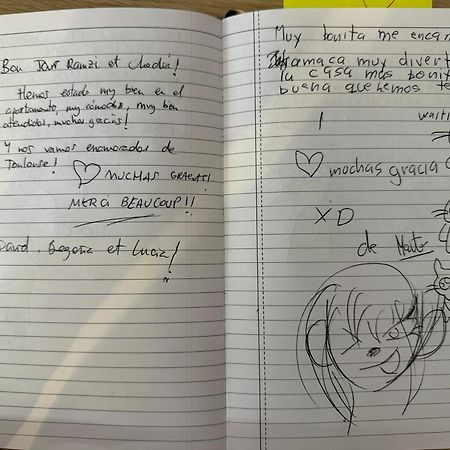 Bon Jour Ramzi et Nadia!
Hemos estado muy bien en el
apartamento, muy cómodos, muy bien
atendidos, muchas gracias!
Y nos vamos enamorados de
Toulouse!
MUCHAS GRACIAS!
MERCI BEAUCOUP!!
David, Begoña et Lucía!
Muy bonita me encan
amaca muy divert
la casa mas bonit
buena que hemos te
1
waiti
mochas gracia
XD
de